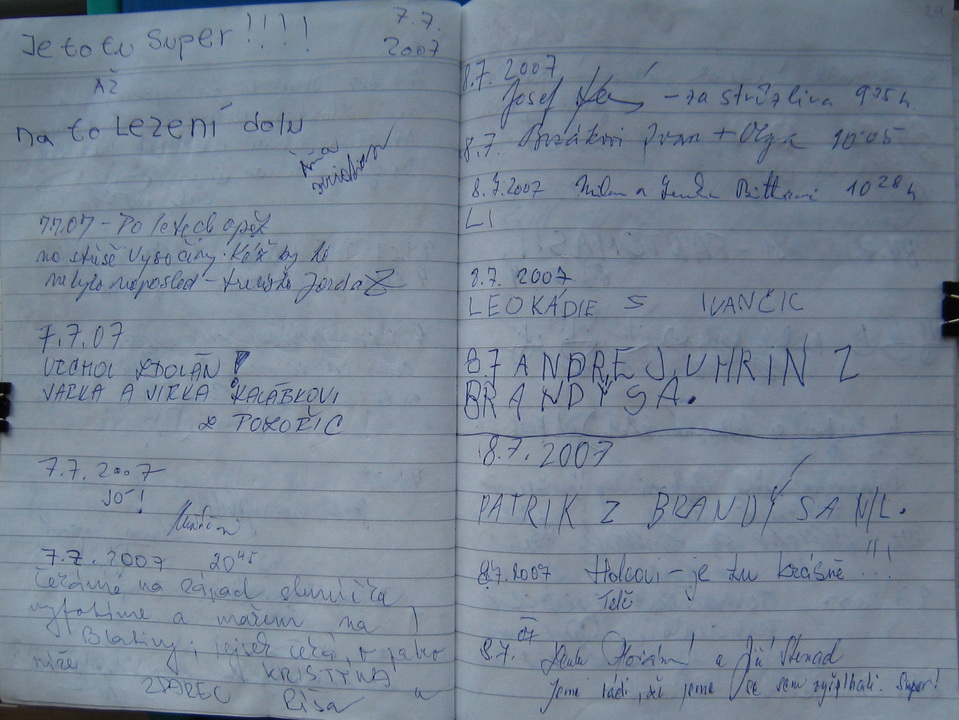 Je to tu super!!!! 7.7.
2007
Až
na to LEZENÍ dolu
7.7.07 - Po letech opět
na střeše Vysočiny. Kéž by to
nebylo naposled -
7.7.07
VRCHOL ZDOLÁN!
JARKA A JIRKA KALÁBKOVI
z POZOŘIC
7.7.2007
JO!
Martin
7.7.2007 20⁴⁵
čekáme na západ sluníčka
vyfotíme a mažem na
Blatiny,
níže KRISTÝNA
ZDAREC Ríša a
8.7.2007
Josef - za střízliva 935 h
8.7. Ivan + Olga 10:05
8.7.2007 Milan a Lenka 10²⁸ h
LI
8.7.2007
LEOKÁDIE S IVANČIC
8.7 ANDREJ UHRIN Z
BRANDÝSA.
8.7.2007
PATRIK Z BRANDÝSA N/L.
8.7.2007 Holcovi - je tu krásně !!!
Telč
8.7. 07 Lenka a Jiří
jsme rádi, že jsme se sem vyšplhali. Super!